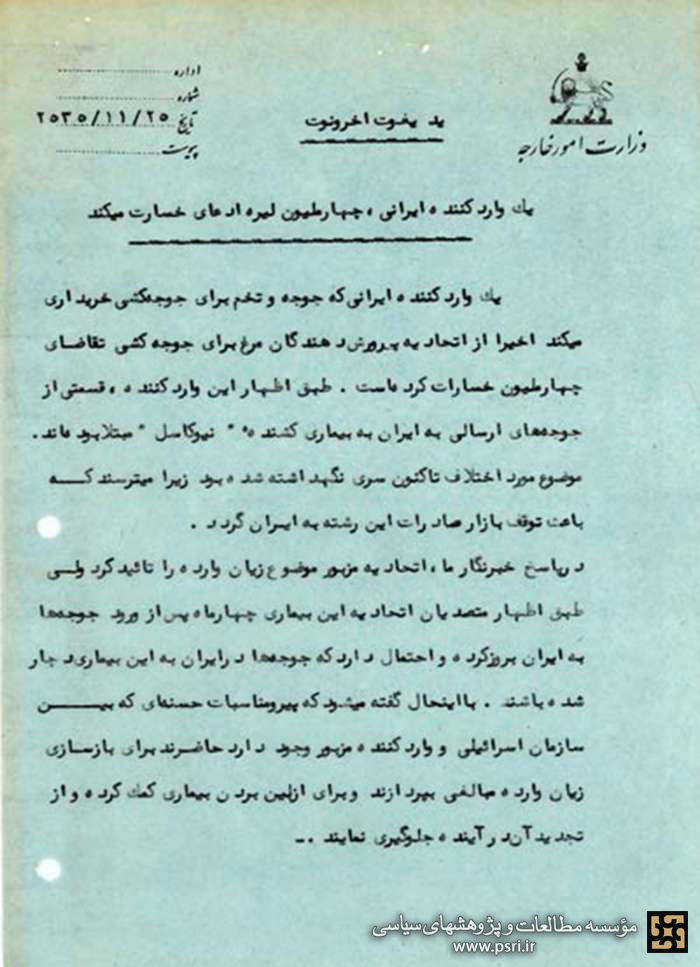 وزارت امور خارجه
اداره
شماره
تاریخ ۲۵۳۵/۱۱/۲۵
پیوست
ید یغوت اخرونوت
یك وارد کننده ایرانی ، چهارملیون لیره ادعای خسارت میکند
یك وارد کننده ایرانی که جوجه و تخم برای جوجه‌کشی خریداری
میکند اخیرا از اتحادیه پرورش‌دهندگان مرغ برای جوجه کشی تقاضای
چهارملیون خسارات کرده‌است . طبق اظهار این وارد کننده ، قسمتی از
جوجه‌های ارسالی به ایران به بیماری کشنده " نیوکاسل " مبتلا بوده‌اند .
موضوع مورد اختلاف تاکنون سری نگهداشته شده بود زیرا میترسند کــه
باعث توقف بازار صادرات این رشته به ایران گردد .
درپاسخ خبرنگار ما ، اتحادیه مزبور موضوع زیان وارده را تائید کرد ولـی
طبق اظهار متصدیان اتحادیه این بیماری چهارماه پس از ورود جوجه‌ها
به ایران بروزکرده و احتمال دارد که جوجه‌ها درایران به این بیماری دچار
شده باشند . بااینحال گفته میشود که پیرومناسبات حسنه‌ای که بیــــن
سازمان اسرائیلی و وارد کننده مزبور وجود دارد حاضرند برای بازسازی
زیان وارده مبالغی بپردازند و برای ازبین بردن بیماری کمك کرده و از
تجدید آن در آینده جلوگیری نمایند .ــ
مؤسسه مطالعات و پژوهشهای سیاسی
www.psri.ir